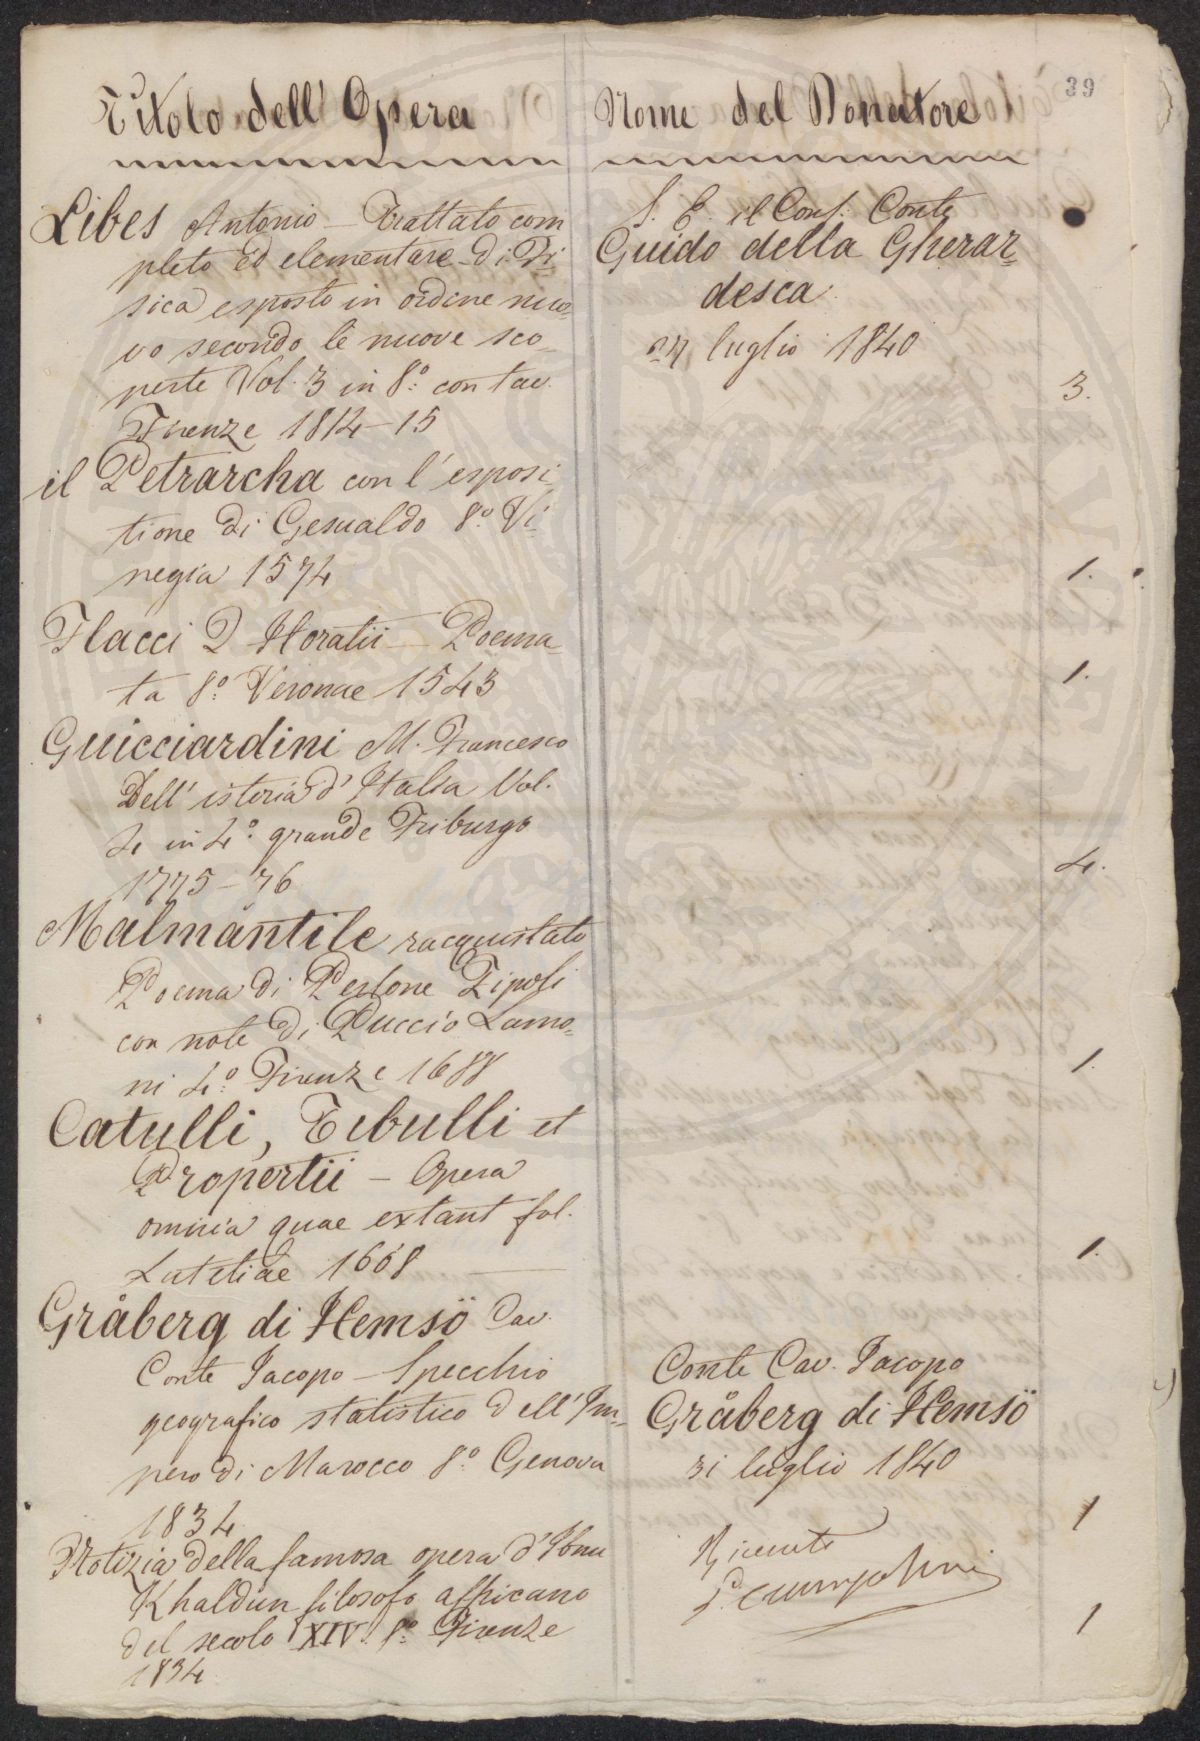 39
Titolo dell' Opera
Libes Antonio — Trattato com
pleto ed elementare di Fi
sica esposto in ordine nuo-
vo secondo le nuove sco-
perte Vol. 3 in 8.º con tav.
Firenze 1814-15
il Petrarcha con l'esposi
tione di Gesualdo 8.º Vi-
negia 1574
Flacci Q Horatii — Poema-
ta 8.º Veronae 1543
Guicciardini M. Francesco
Dell' istoria d'Italia Vol.
4 in 4.º grande Friburgo
1775-76
Malmantile racquistato
Poema di Perlone Zipoli
con note di Puccio Lamo-
ni 4.º Firenze 1688
Catulli, Tibulli et
Propertii — Opera
omnia quae extant fol.
Lutetiae 1608
Gråberg di Hemsö Cav.
Conte Jacopo — Specchio
geografico statistico dell' Im-
pero di Marocco 8.º Genova
1834
Notizia della famosa opera d'Ibnu
Khaldùn filosofo affricano
del secolo XIV. 8.º Firenze
1834
Nome del Donatore
S. E. il Cons. Conte
Guido della Gherar-
desca
27 luglio 1840
Conte Cav. Jacopo
Gråberg di Hemsö
31 luglio 1840
3.
1.
1.
4.
1.
1.
1
1